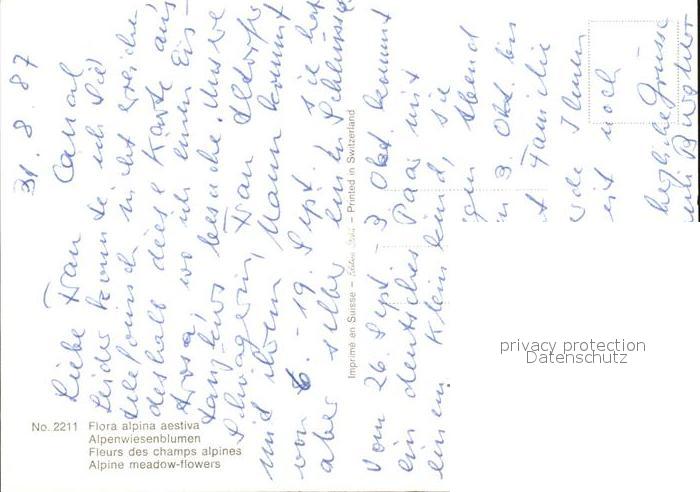 31. 8. 87
Liebe Frau Canal
Leider konnte ich Sie
telefonisch nicht erreichen,
deshalb diese Karte aus
Arosa, wo ich einen Eis-
tanzkurs besuche. Unsere
Schwägerin, Frau
mit ihrem Mann kommt
vom 6. - 19. Sept. sie hat
aber selber einen Schlüssel
Vom 26. Sept - 3 Okt. kommt
ein deutsches Paar mit
einem Kleinkind, sie
Abend
3. Okt. bis
Familie
Ihnen
noch
herzliche Grüsse
Imprimé en Suisse – – Printed in Switzerland
No. 2211 Flora alpina aestiva
Alpenwiesenblumen
Fleurs des champs alpines
Alpine meadow-flowers
privacy protection
Datenschutz